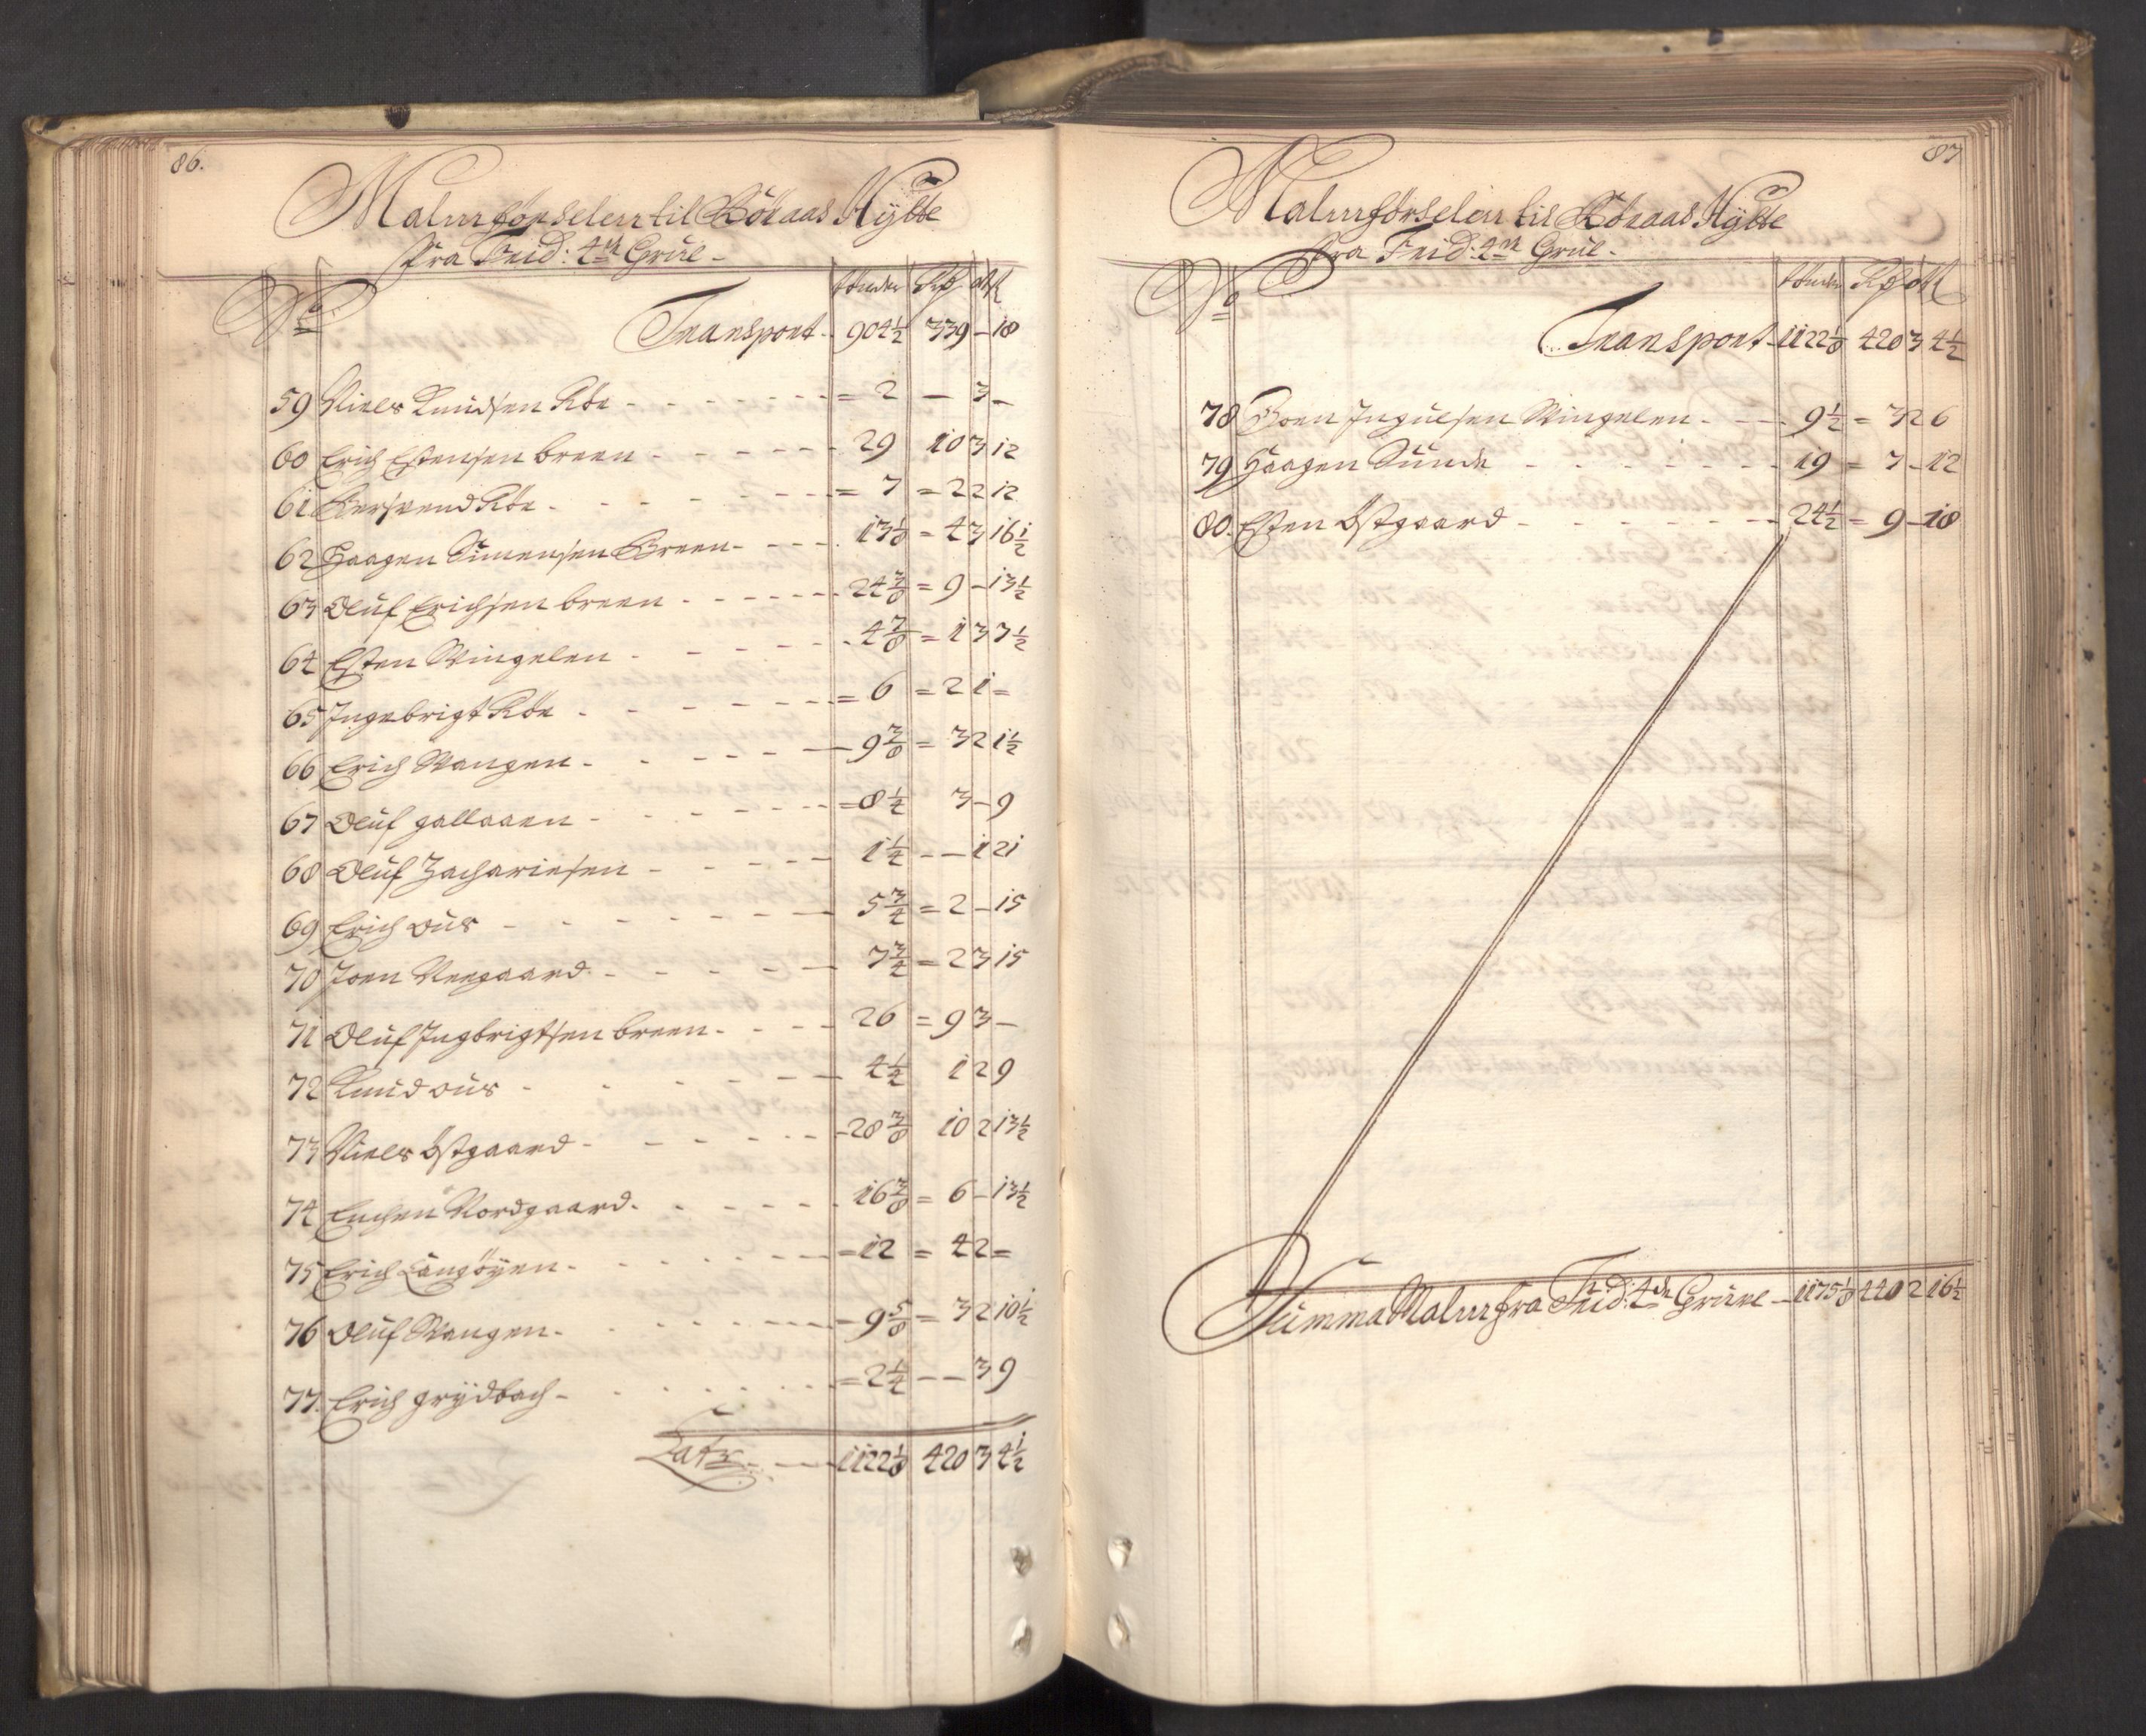 86.
Malmförselen til Röraas Hÿtte
fra Frid: 4de Grul -
No
tönder Rdr ort ß
Transport - 904½ 339 - 18
59 Niels Knudsen Röe - - - = 2 — 3 -
60 Erich Estensen breen - - - 29 10 3 12
61 Berswend Röe - - - = 7 = 2 2 12
62 Haagen Simensen Breen - - - 13⅛ = 4 3 16½
63 Oluf Erichsen breen - - - 24⅜ = 9 - 13½
64 Esten Wingelen - - - 4⅞ = 1 3 7½
65 Ingebrigt Röe - - - = 6 = 2 1 =
66 Erich Wangen - - - 9⅜ = 3 2 1½
67 Oluf gallaaen - - - = 8¼ 3 - 9
68 Oluf Zachariesen - - - 1½ - - 1 21
69 Erich ous - - - 5¾ = 2 - 15
70 Joen Neegaard - - - 7¾ = 2 3 15
71 Oluf Ingbrigtsen breen - - - 26 = 9 3 -
72 Knud ous - - - 4½ 1 2 9
73 Niels östgaard - - - 28⅜ 10 2 13½
74 Enchen Nordgaard - - - 16⅜ = 6 - 13½
75 Erich Langöÿen - - - = 12 = 4 2 =
76 Oluf Wangen - - - 9⅝ = 3 2 10½
77. Erich grÿdbach - - - = 2¼ - - 3 9
Latr - - - 1122⅛ 420 3 4½
87
Malmförselen til Röraas Hÿtte
fra Frid: 4de Grul -
No
tönder Rdr ort ß
Transport - 1122⅛ 420 3 4½
78 Joen Ingulsen Wingelen - - - 9½ = 3 2 6
79 Haagen Sunde - - - 19 = 7 - 12
80. Esten östgaard - - - 24½ = 9 - 18
Summa Malm fra Frid: 4de Gruve - 1175⅛ 440 2 16½